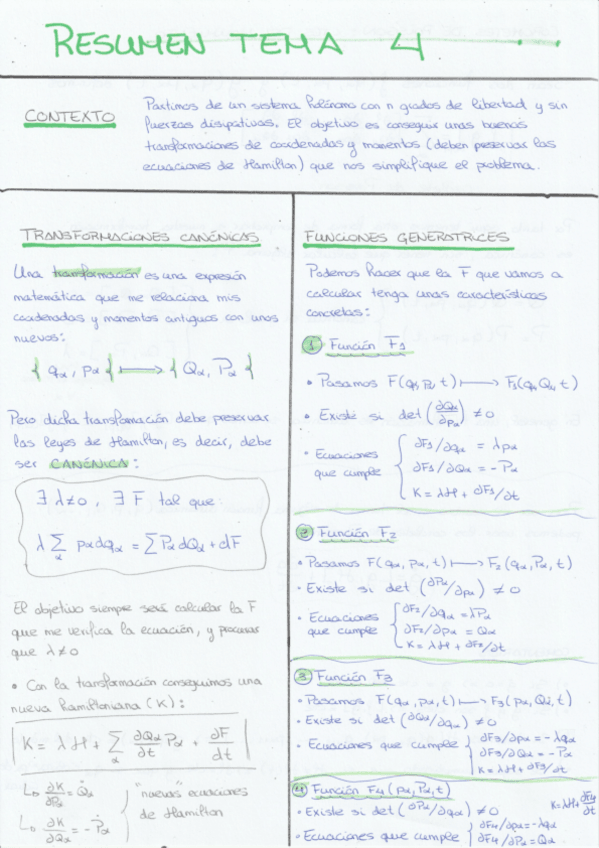 RESUMEN TEMA 4
CONTEXTO
Partimos de un sistema holónomo con n grados de libertad y sin
fuerzas disipativas. El objetivo es conseguir unas buenas
transformaciones de coordenadas y momentos (deben preservar las
ecuaciones de Hamilton) que nos simplifique el problema.
TRANSFORMACIONES CANÓNICAS
Una transformación es una expresión
matemática que me relaciona mis
coordenadas y momentos antiguos con unos
nuevos:
{ qα, pα } ⟼ { Qα, Pα }
Pero dicha transformación debe preservar
las leyes de Hamilton, es decir, debe
ser CANÓNICA:
∃ λ≠0, ∃ F tal que:
λ ∑α pα dqα = ∑ Pα dQα + dF
El objetivo siempre será calcular la F
que me verifica la ecuación, y procurar
que λ≠0
• Con la transformación conseguimos una
nueva hamiltoniana (K):
K = λH + ∑α ∂Qα/∂t Pα + ∂F/dt
↳ ∂K/∂Pα = Q̇α
↳ ∂K/∂Qα = -Ṗα
"nuevas" ecuaciones
de Hamilton
FUNCIONES GENERATRICES
Podemos hacer que la F que vamos a
calcular tenga unas características
concretas:
1 Función F1
• Pasamos F(qα, pα, t) ⟼ F1(qα, Qα, t)
• Existe si det (∂Qα/∂pα) ≠ 0
• Ecuaciones
que cumple
∂F1/∂qα = λpα
∂F1/∂Qα = -Pα
K = λH + ∂F1/∂t
2 Función F2
• Pasamos F(qα, pα, t) ⟼ F2(qα, Pα, t)
• Existe si det (∂Pα/∂pα) ≠ 0
• Ecuaciones
que cumple
∂F2/∂qα = λPα
∂F2/∂pα = Qα
K = λH + ∂F2/∂t
3 Función F3
• Pasamos F(qα, pα, t) ⟼ F3(pα, Qα, t)
• Existe si det (∂Qα/∂qα) ≠ 0
• Ecuaciones que cumple
∂F3/∂pα = -λqα
∂F3/∂Qα = -Pα
K = λH + ∂F3/∂t
4 Función F4(pα, Pα, t)
• Existe si det (∂Pα/∂qα) ≠ 0
K = λH + ∂F4/∂t
• Ecuaciones que cumple
∂F4/∂pα = -λqα
∂F4/∂Pα = Qα